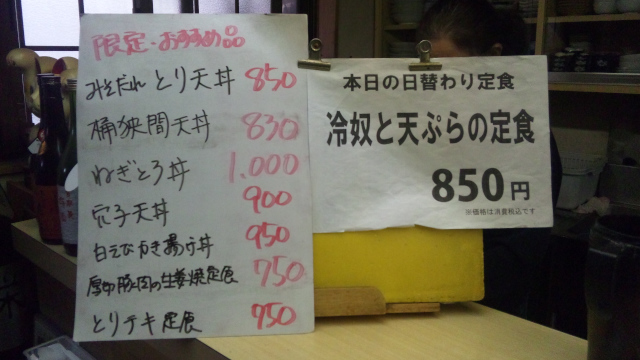 限定・おすすめ品
みそだれとり天丼 850
桶狭間天丼 830
ねぎとろ丼 1.000
穴子天丼 900
白えびかき揚げ丼 950
厚切豚肉の生姜焼定食 750
とりテキ定食 750
本日の日替わり定食
冷奴と天ぷらの定食
850円
※価格は消費税込です